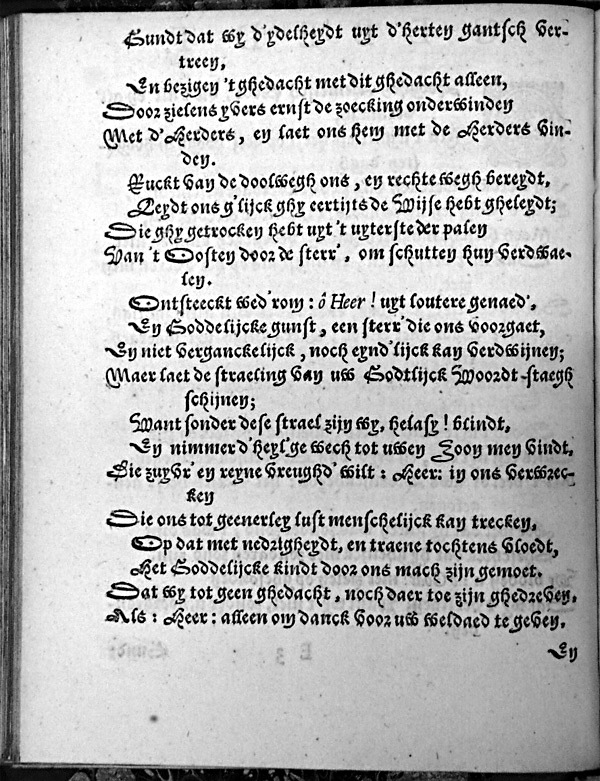 Gundt dat wy d'ydelheydt uyt d'herten gantsch ver-
treen,
En bezigen 't ghedacht met dit ghedacht alleen,
Door zielens yvers ernst de zoecking onderwinden
Met d'Herders, en laet ons hem met de Herders vin-
den.
Ruckt van de doolwegh ons, en rechte wegh bereydt,
Leydt ons g'lijck ghy eertijts de Wijse hebt gheleydt;
Die ghy getrocken hebt uyt 't uyterste der palen
Van 't Oosten door de sterr', om schutten hun verdwae-
len.
Ontsteeckt wed'rom: ô Heer! uyt loutere genaed',
En Goddelijcke gunst, een sterr' die ons voorgaet,
En niet verganckelijck, noch eynd'lijck kan verdwijnen;
Maer laet de straeling van uw Godtlijck Woordt staegh
schijnen;
Want sonder dese strael zijn wy, helasy! blindt,
En nimmer d'heyl'ge wech tot uwen Zoon men vindt,
Die zuyvr' en reyne vreughd' wilt: Heer: in ons verwrec-
ken
Die ons tot geenerley lust menschelijck kan trecken,
Op dat met nedrigheydt, en traene tochtens vloedt,
Het Goddelijcke kindt door ons mach zijn gemoet.
Dat wy tot geen ghedacht, noch daer toe zijn ghedreven,
Als: Heer: alleen om danck voor uw weldaed te geven.
En